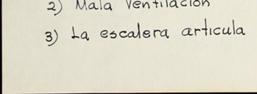 2) Mala Ventilación
3) La escalera articula